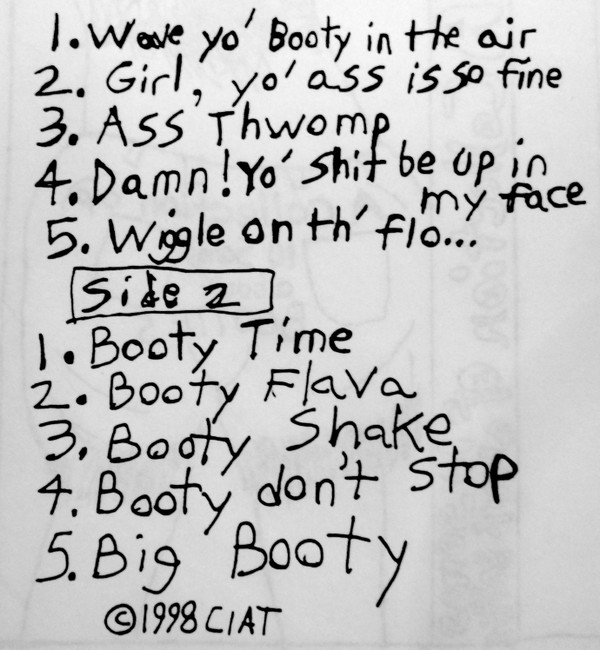 1. Wave yo' Booty in the air
2. Girl, yo' ass is so fine
3. Ass Thwomp
4. Damn! Yo' shit be up in
my face
5. Wiggle on th' flo...
Side 2
1. Booty Time
2. Booty Flava
3. Booty Shake
4. Booty don't stop
5. Big Booty
©1998 CIAT